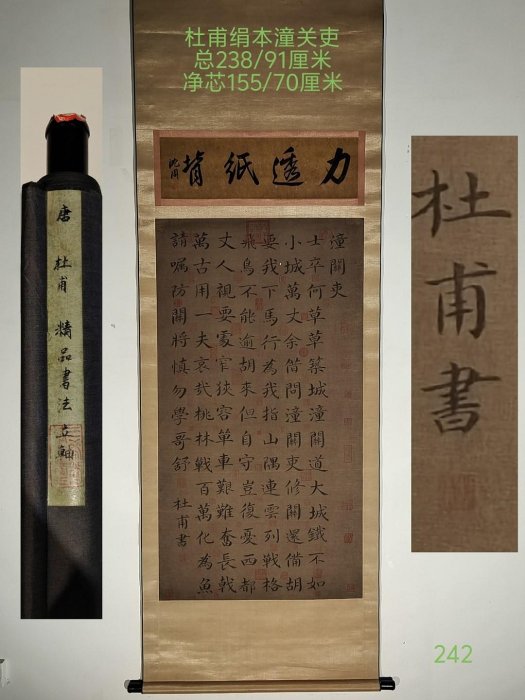 杜甫绢本潼关吏
总238/91厘米
净芯155/70厘米
力透紙背
沈周
潼關吏
士卒何草草築城潼關道大城鐵不如
小城萬丈余借問潼關吏修關還備胡
要我下馬行為我指山隅連雲列戰格
飛鳥不能逾胡來但自守豈復憂西都
丈人視要處窄狹容單車艱難奮長戟
萬古用一夫哀哉桃林戰百萬化為魚
請囑防關將慎勿學哥舒
杜甫書
唐 杜甫 精品書法立軸
杜甫書
242